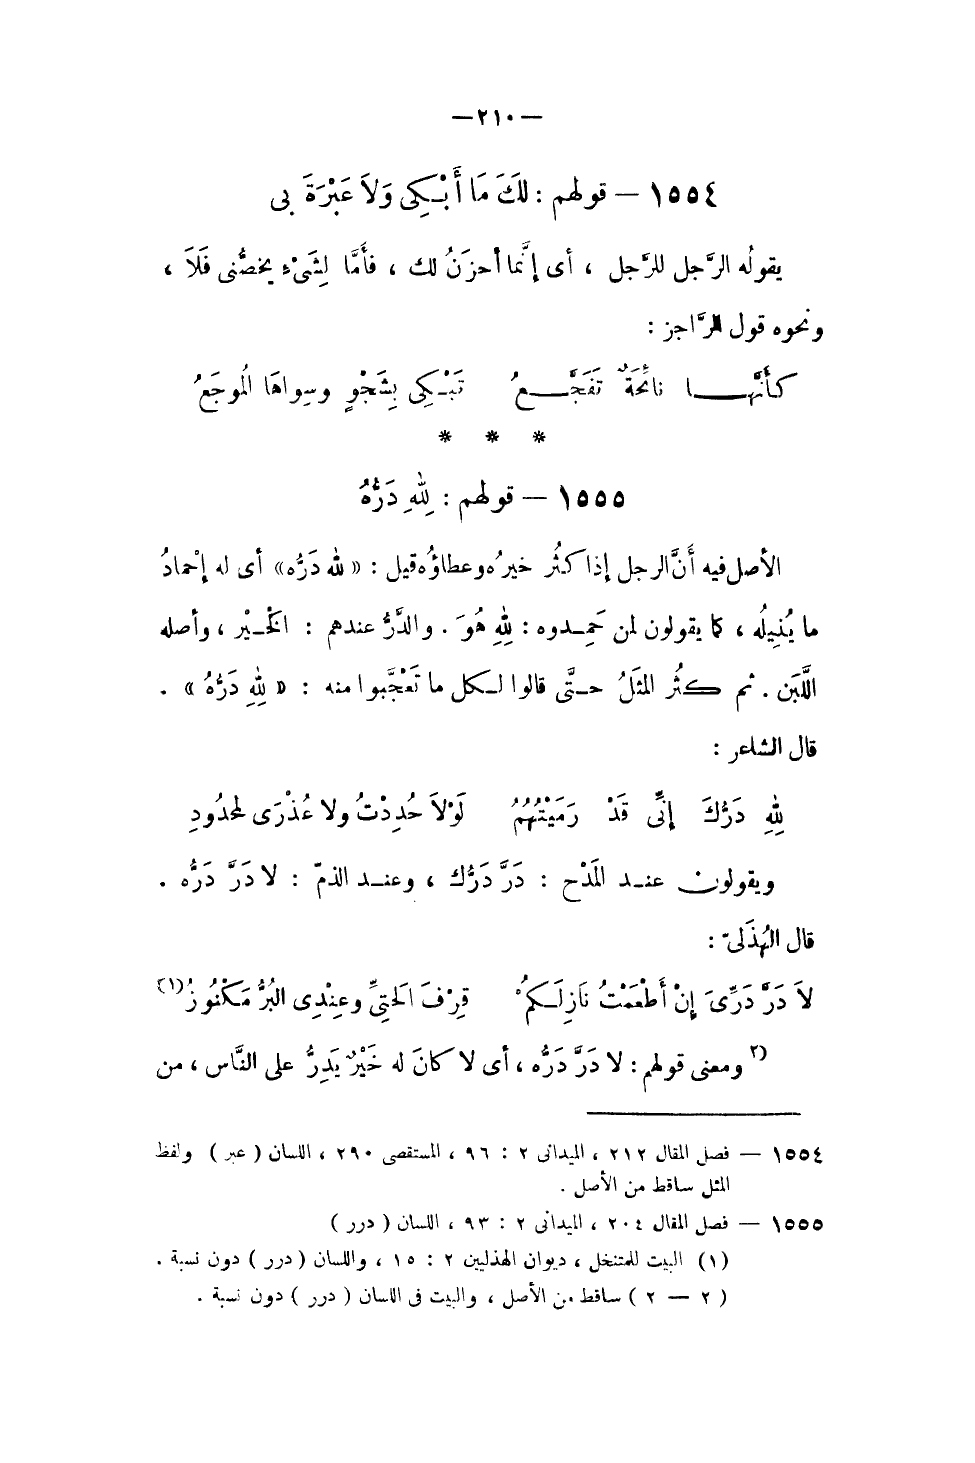 —٢١٠—
١٥٥٤ — قولهم : لَكَ مَا أَبْكِى وَلاَ عَبْرَةَ بِى
يقولُه الرَّجل للرَّجل ، أى إنَّما أحزَنُ لك ، فأَمَّا لِشَىْءٍ يخصُّنى فَلاَ ،
ونحوه قول الرَّاجز :
كأَنَّهَا نائِحَةٌ تَفَجَّعُ تَبْكِى بِشَجْوٍ وسِواهَا الُموجَعُ
* * *
١٥٥٥ — قولهم : لِلهِ دَرُّهُ
الأصل فيه أنَّ الرجل إذا كثُر خيرُه وعطاؤُه قيل : « لله دَرُّه» أى له إحْمادُ
ما يُنيِلُه ، كما يقولون لمن حَمِدوه : لِلهِ هُوَ . والدَّرُّ عندهم : الَخْير ، وأصله
اللَّبَن . ثم كثُر المثَلُ حتَّى قالوا لكل ما تَعْجَّبوا منه : « لِلهِ دَرُّهُ » .
قال الشاعر :
لِلهِ دَرُّكَ إنِّى قَدْ رَمَيْتُهُمُ لَوْلاَ حُدِدْتُ ولا عُذْرَى لمحدُودِ
ويقولون عند المَدْح : دَرَّ دَرُّك ، وعند الذمّ : لا دَرَّ دَرُّه .
قال الهُذَلىّ :
لاَ دَرَّ دَرِّىَ إنْ أَطْعَمْتُ نَازِلَكمُ قِرْفَ الَحتِىِّ وعِنْدِى البُرُّ مَكْنُوزُ(١)
(٢ ومعنى قولهم : لا دَرَّ دَرُّه ، أى لا كانَ له خَيْرٌ يَدِرُّ على النَّاس ، من
١٥٥٤ — فصل المقال ٢١٢ ، الميدانى ٢ : ٩٦ ، المستقصى ٢٩٠ ، اللسان ( عبر ) ولفظ
المثل ساقط من الأصل .
١٥٥٥ — فصل المقال ٢٠٤ ، الميدانى ٢ : ٩٣ ، اللسان ( درر )
(١) البيت للمتنخل ، ديوان الهذليين ٢ : ١٥ ، واللسان ( درر ) دون نسبة .
( ٢ — ٢ ) ساقط من الأصل ، والبيت فى اللسان ( درر ) دون نسبة .